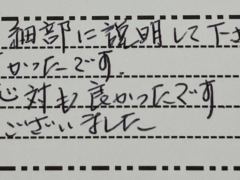 細部に説明して下さ
かったです.
心対も良かったです
ございました